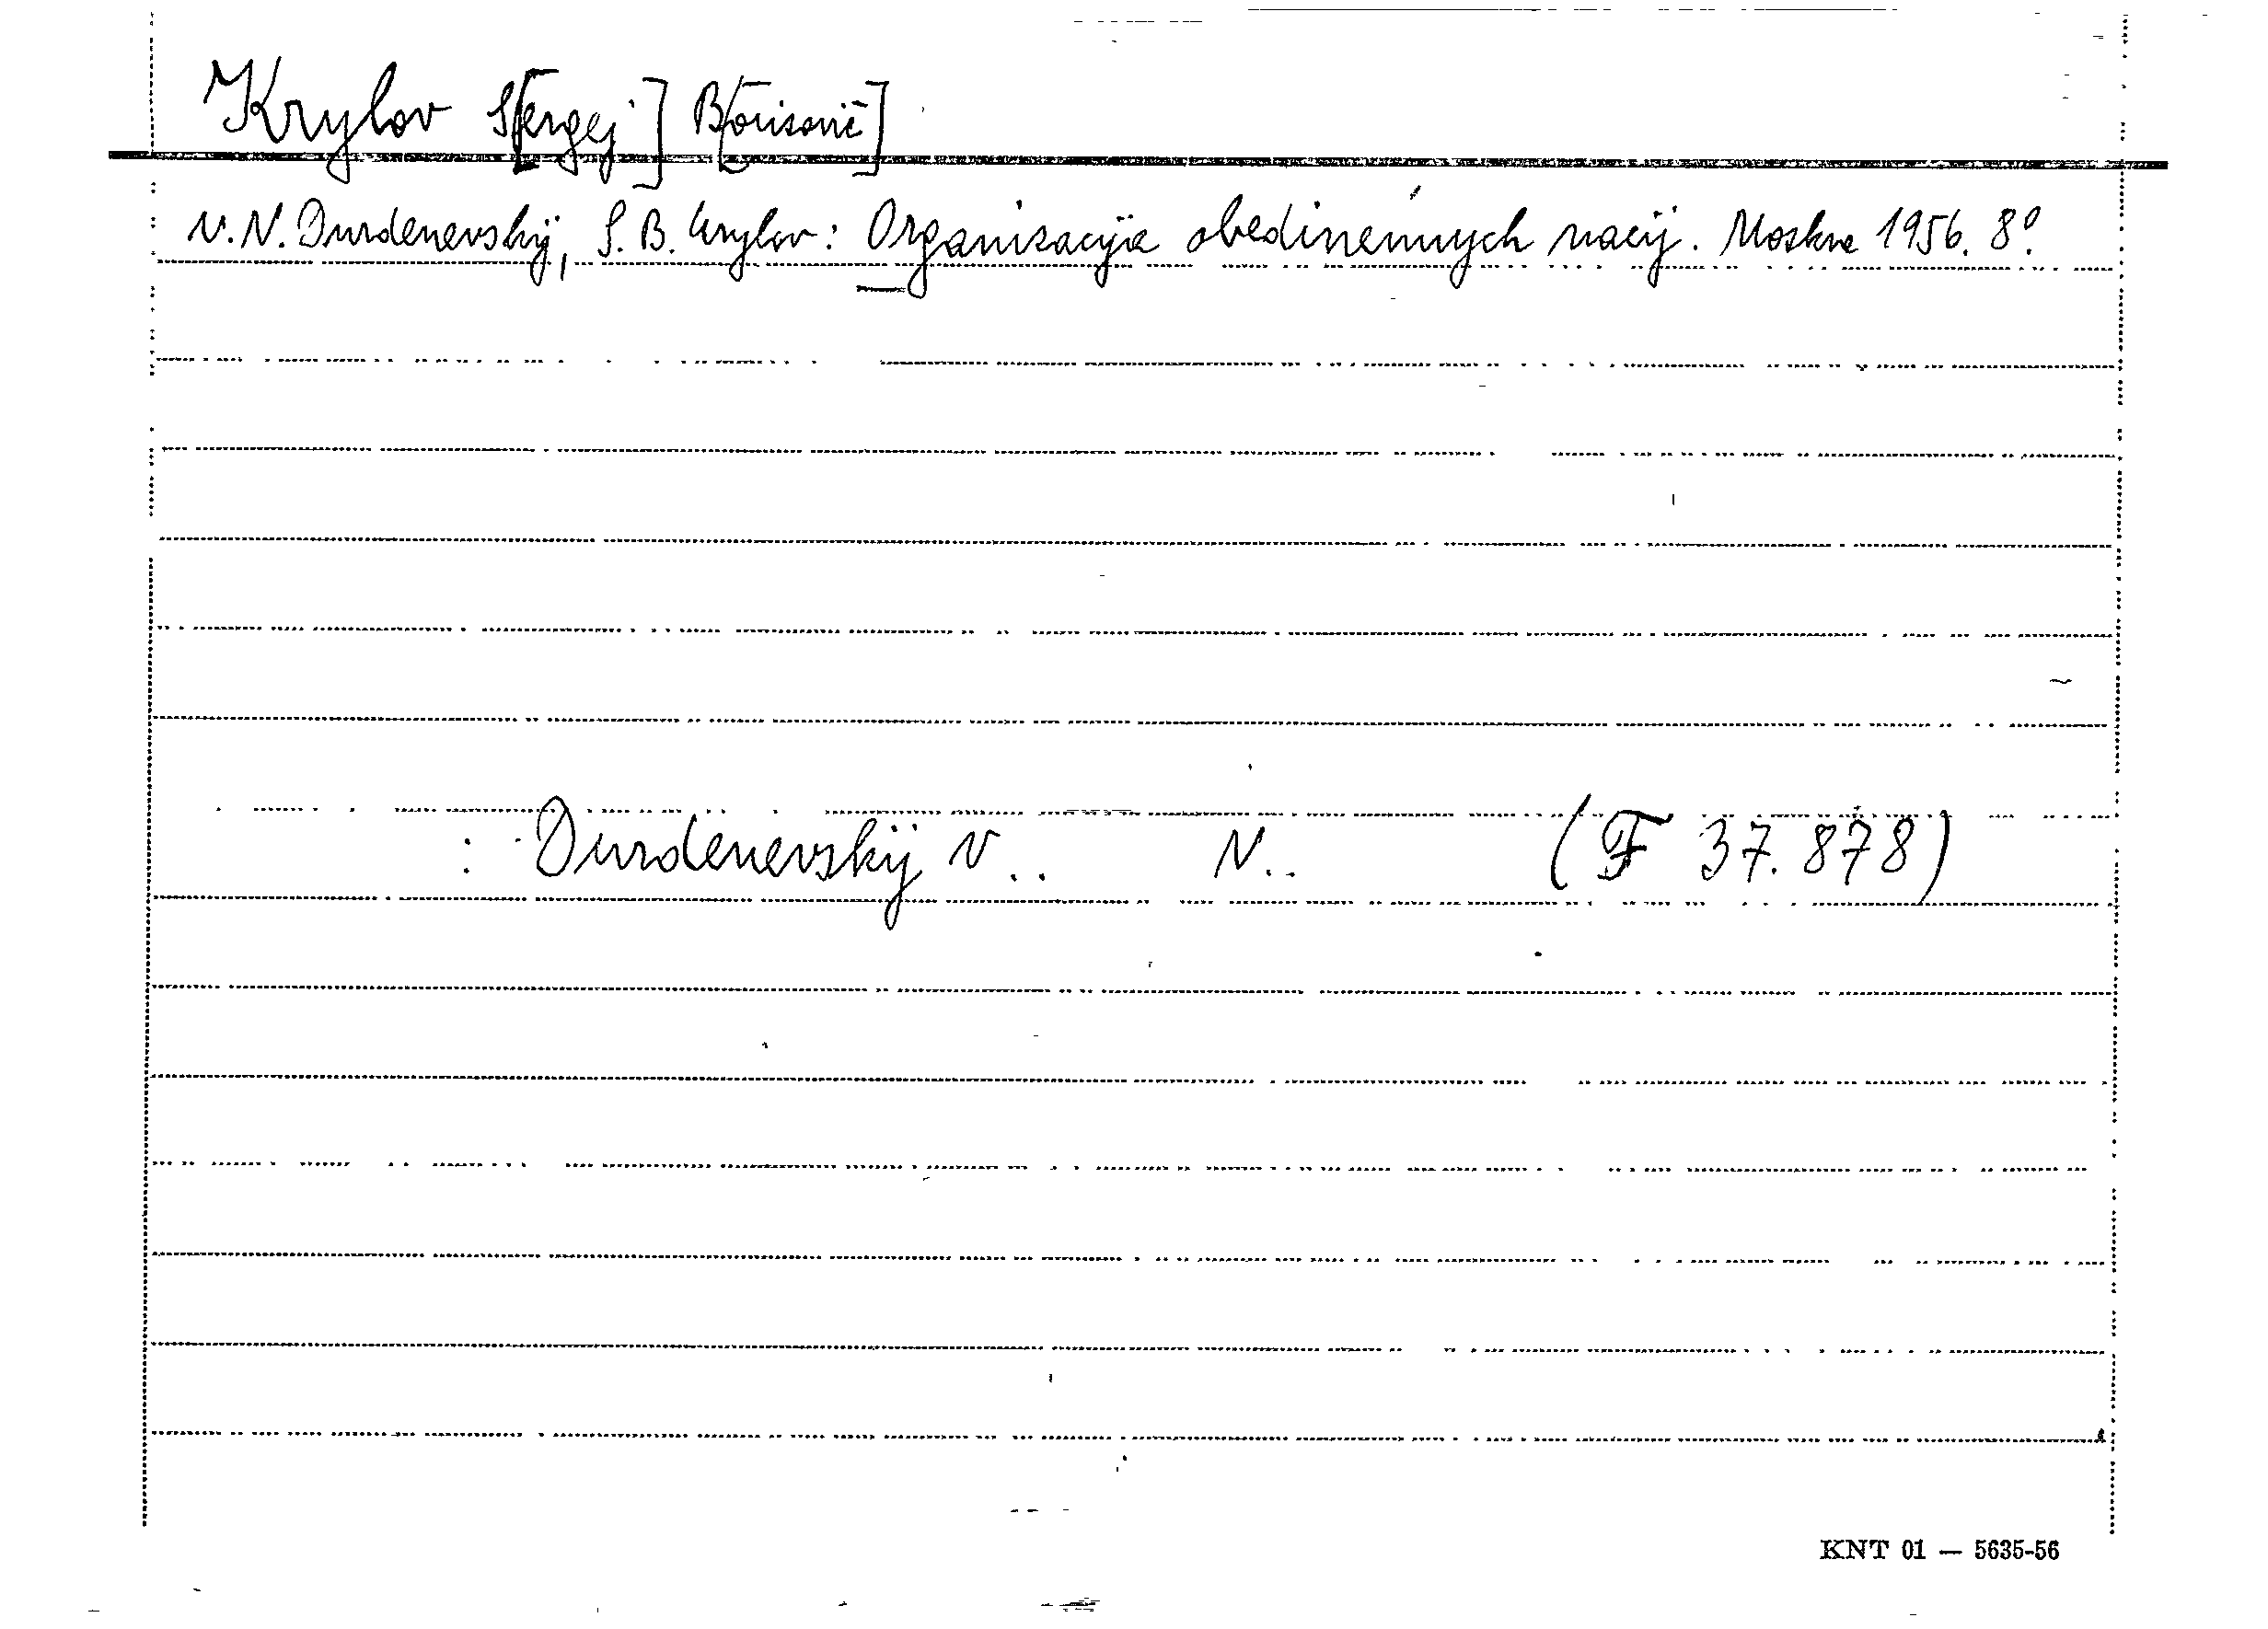 Krylov S[ergej] B[orisovič]
V. N. Durdenevskij, S. B. Krylov: Organizacija obedinennych nacij. Moskva 1956. 8°.
: Durdenevskij V.. N.. (F 37.878)
KNT 01 — 5635-56